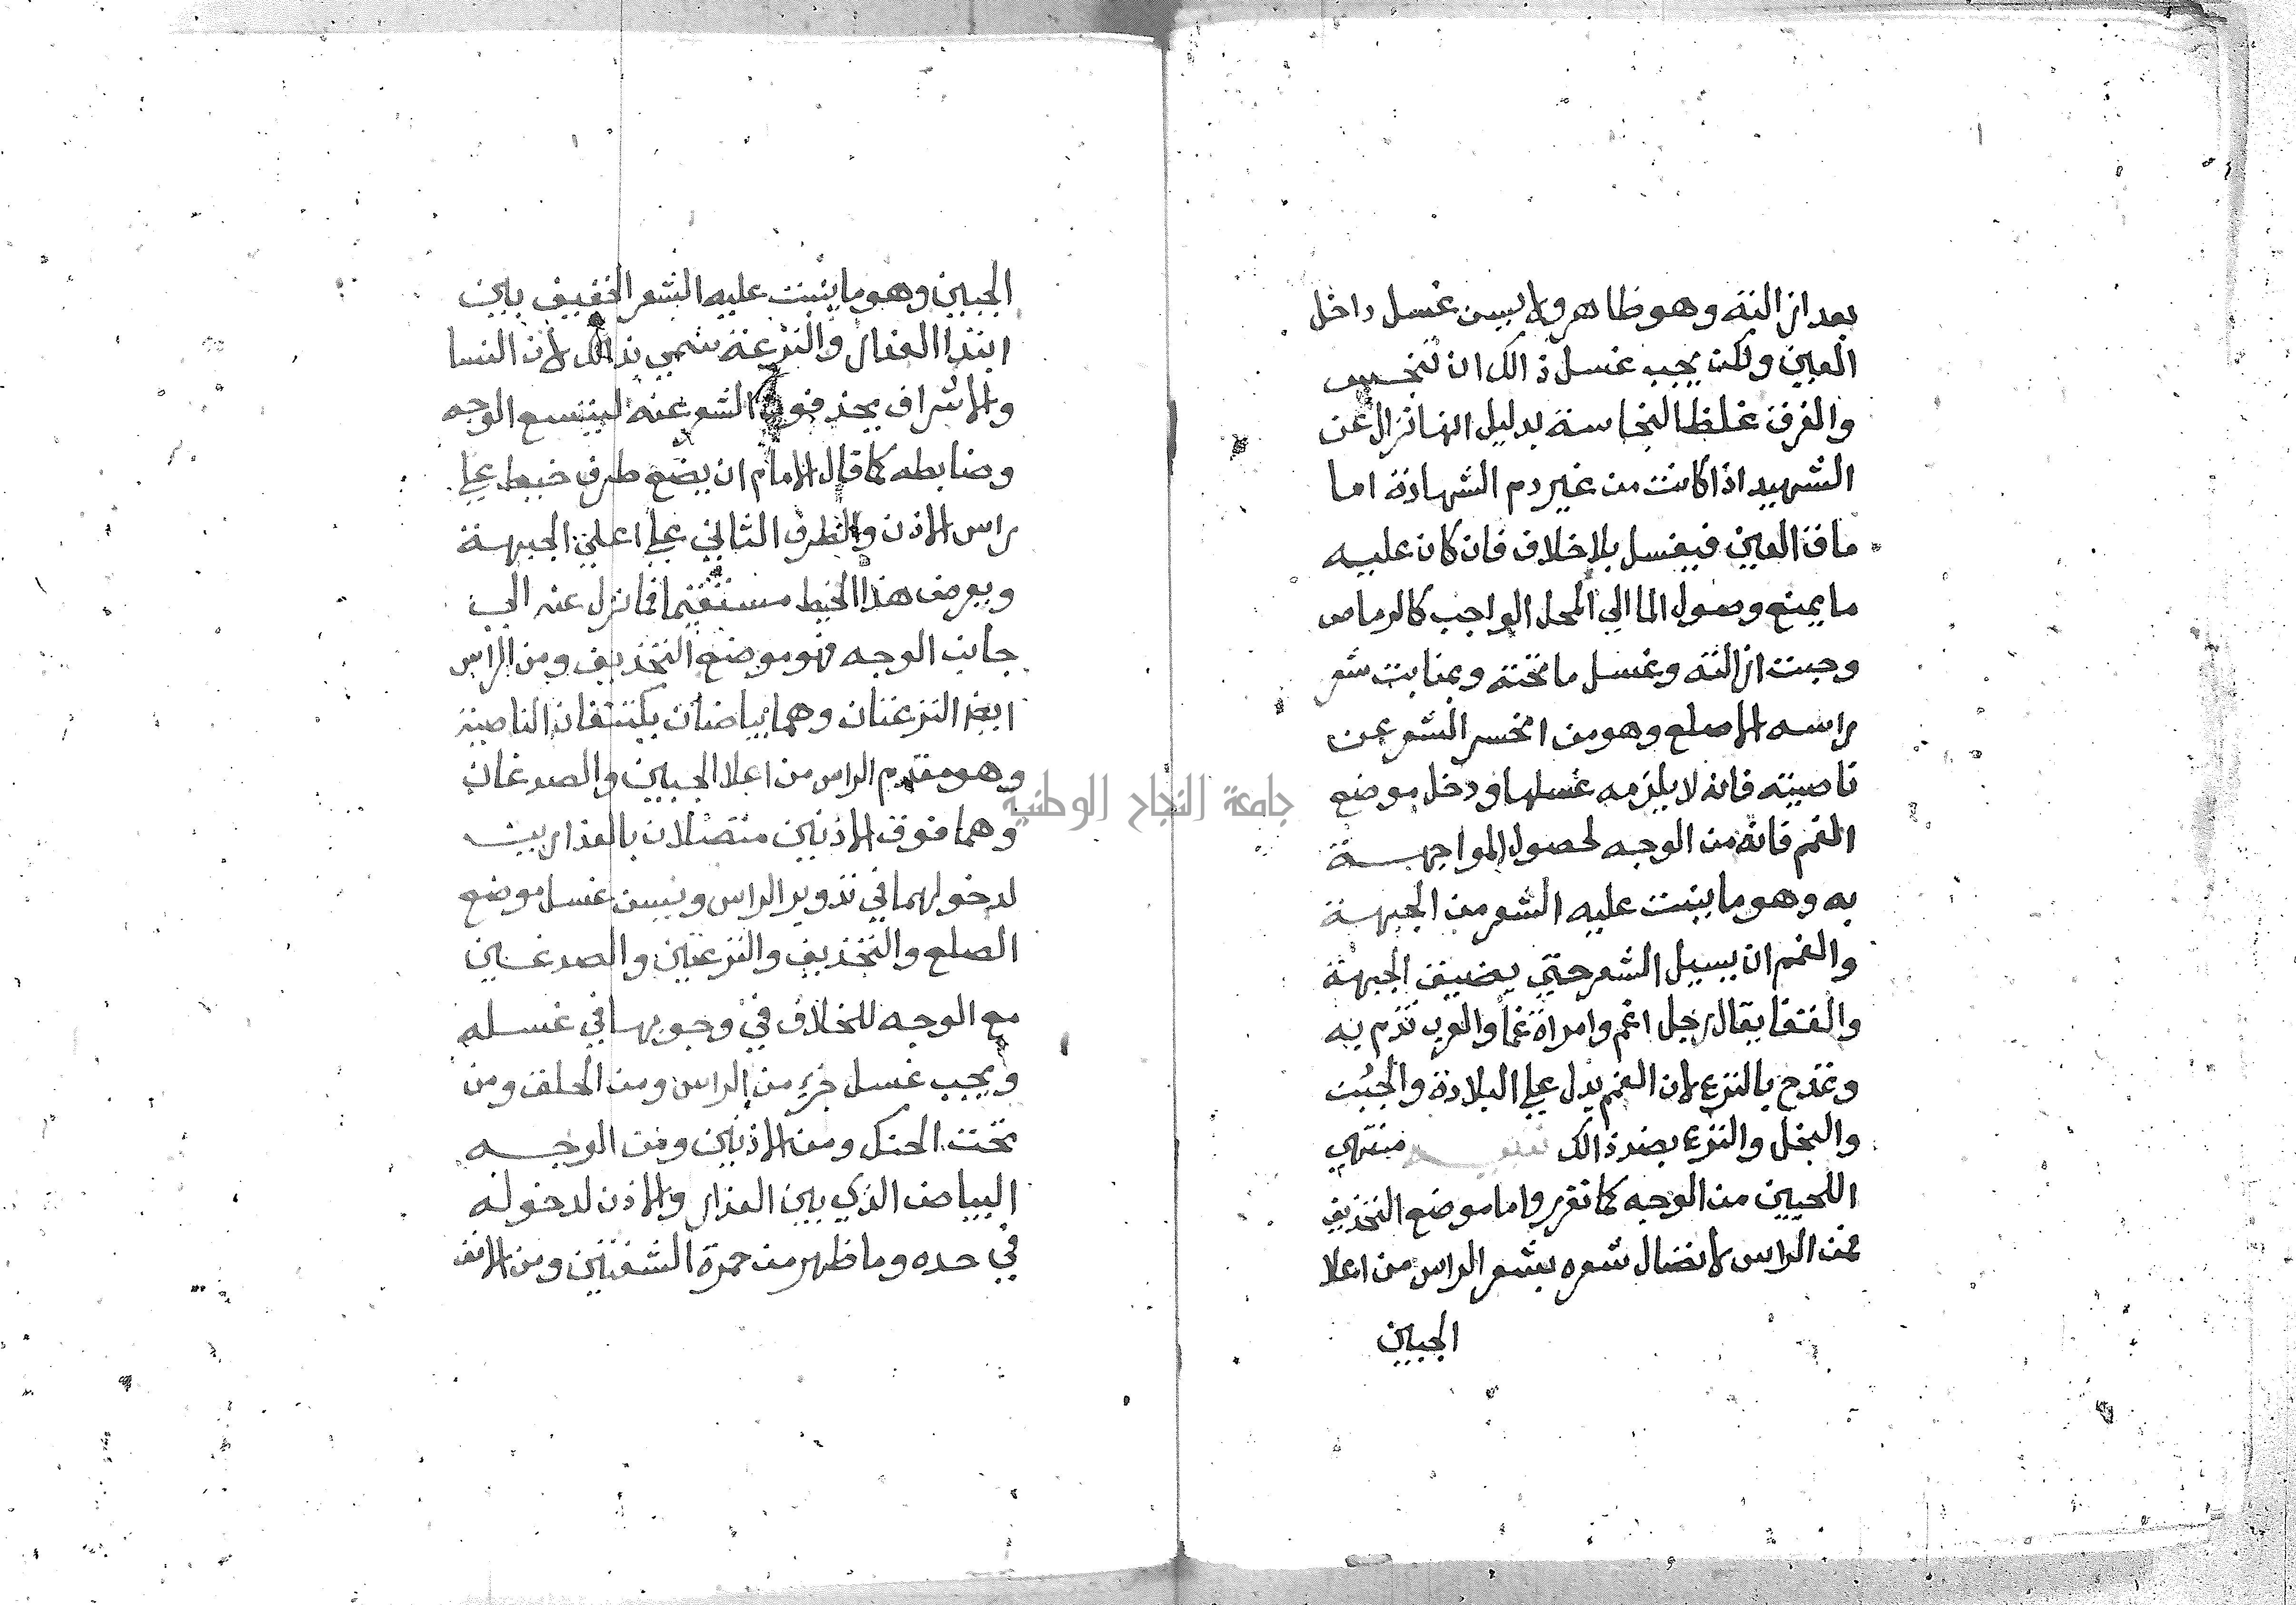 بعد ازالته وهو ظاهر ولا يسن غسل داخل
العين ولكن يجب غسل ذالك ان تنجس
والفرق غلظ النجاسة بدليل انها تزال عن
الشهيد اذا كانت من غير دم الشهادة اما
ماق العين فيغسل بلا خلاف فان كان عليه
ما يمنع وصول الما الي المحل الواجب كالرماص
وجبت ازالته وغسل ما تحته وبمنابت شعر
راسه الاصلع وهو من انحسر الشعر عن
ناصيته فانه لا يلزمه غسلها ودخل موضع
الغمم فانه من الوجه لحصول المواجهة
به وهو ما ينبت عليه الشعر من الجبهة
والغمم ان يسيل الشعر حتي يضيق الجبهة
والقفا يقال رجل اغم وامراة غما والعرب تذم به
وتمدح بالنزع لان الغمم يدل علي البلادة والجبن
والبخل والنزع بضد ذالك تنبيه منتهي
اللحيين من الوجه كما تقرر واما موضع التحذيف
فمن الراس لاتصال شعره بشعر الراس من اعلا
الجبين
الجبين وهو ما ينبت عليه الشعر الخفيف بين
ابتدا العذار والنزعة سمي بذالك لان النسا
والاشراف يحذفون الشعر عنه ليتسع الوجه
وضابطه كما قال الامام ان يضع طرف خيط علي
راس الاذن والطرف الثاني علي اعلي الجبهة
ويعرض هذا الخيط مستقيما فما نزل عنه الي
جانب الوجه فهو موضع التحذيف ومن الراس
ايضا النزعتان وهما بياضان يكتنفان الناصية
وهو مقدم الراس من اعلا الجبين والصدغان
وهما فوق الاذنين متصلان بالعذارين
لدخولهما في تدوير الراس ويسن غسل موضع
الصلع والتحذيف والنزعتين والصدغين
مع الوجه للخلاف في وجوبها في غسله
ويجب غسل جزء من الراس ومن الحلق ومن
تحت الحنك ومن الاذنين ومن الوجه
البياض الذي بين العذار والاذن لدخوله
في حده وما ظهر من حمرة الشفتين ومن الانف
جامعة النجاح الوطنية